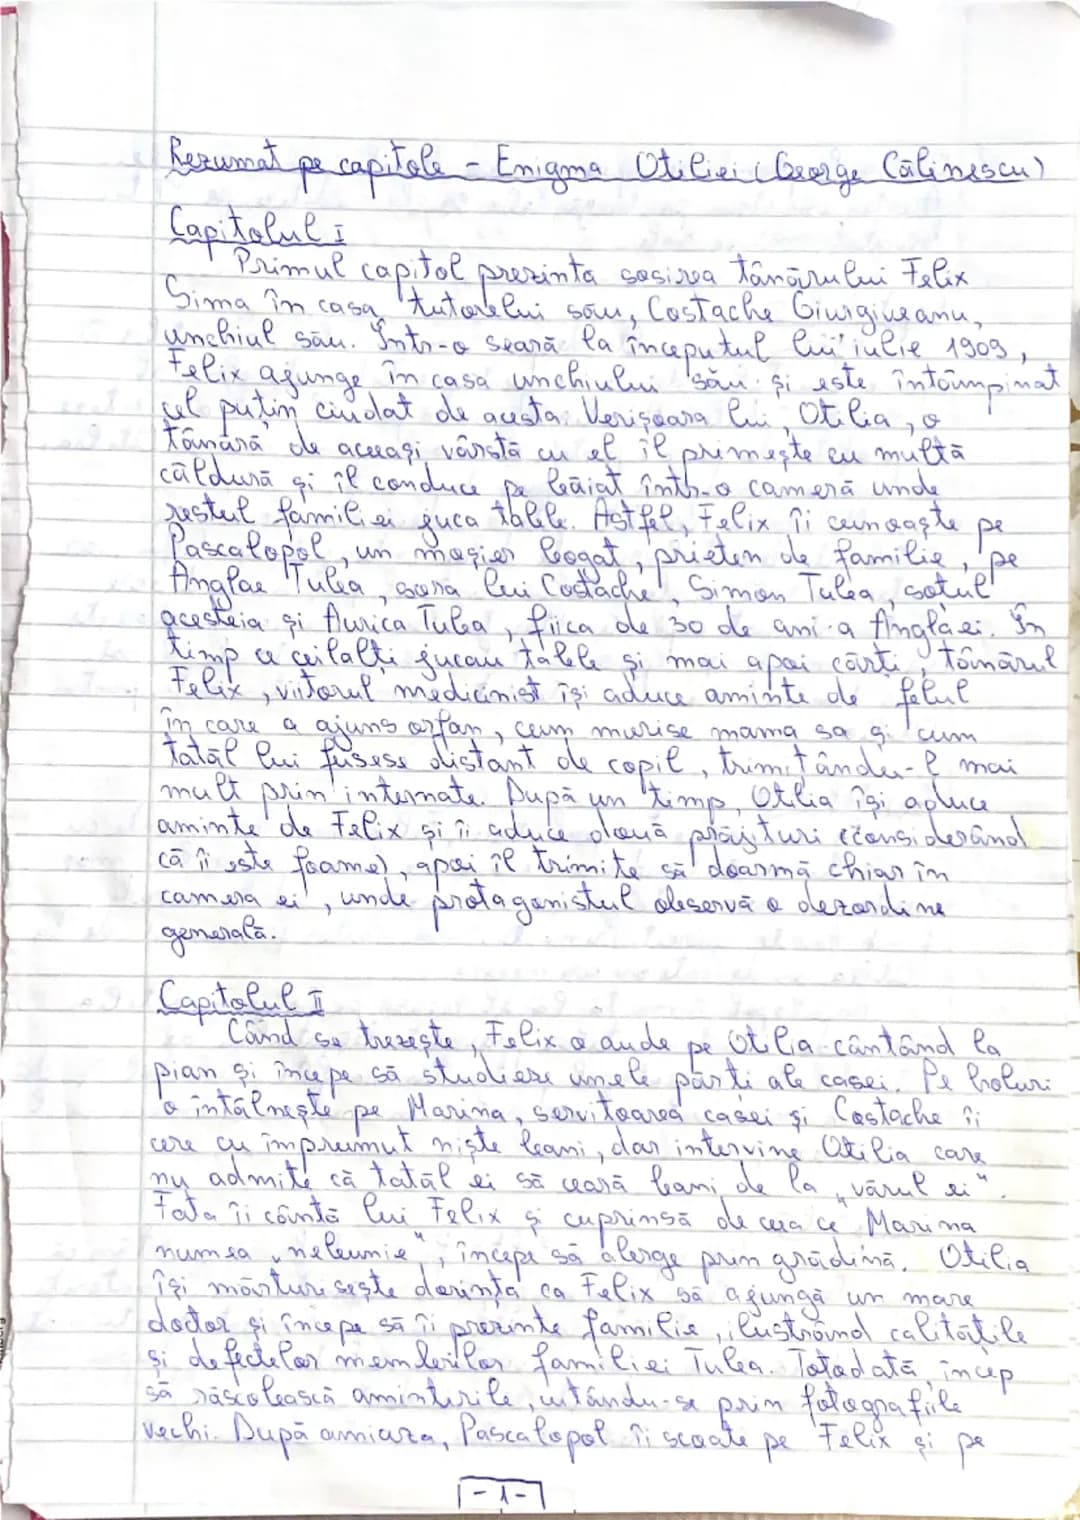 Rezumat pe capitole - Enigma Otiliei (George Călinescu)
Capitolul I
Primul capitol prezinta sosirea tânărului Felix
Sima în casa tutorelui său, Costache Giurgiuveanu,
unchiul său. Într-o seară la începutul lui iulie 1909,
Felix ajunge în casa unchiului său și este întâmpinat
cel puțin ciudat de acesta. Verișoara lui, Otilia, o
tânără de aceeași vârstă cu el îl primește cu multă
căldură și îl conduce pe băiat într-o cameră unde
restul familiei juca table. Astfel, Felix îi cunoaște pe
Pascalopol, un moșier bogat, prieten de familie, pe
Anglae Tulea, sora lui Costache, Simon Tulea, soțul
acesteia și Aurica Tulea, fiica de 30 de ani a Anglaei. În
timp ce ceilalți jucau table și mai apoi cărți, tânărul
Felix, viitorul medicinist își aduce aminte de felul
în care a ajuns orfan, cum murise mama sa și cum
tatăl lui fusese distant de copil, trimițându-l mai
mult prin internate. După un timp, Otilia își aduce
aminte de Felix și îi aduce două prăjituri (considerând
că îi este foame), apoi îl trimite să doarmă chiar în
camera ei, unde protagonistul observă o dezordine
generală.
Capitolul II
Când se trezește, Felix o aude pe Otilia cântând la
pian și începe să studieze unele părți ale casei. Pe holuri
o întâlnește pe Marina, servitoarea casei și Costache îi
cere cu împrumut niște bani, dar intervine Otilia care
nu admite că tatăl ei să ceară bani de la „vărul ei".
Fata îi cântă lui Felix și cuprinsă de ceea ce Marina
numea „nebunie", începe să alerge prin grădină. Otilia
își mărturisește dorința ca Felix să ajungă un mare
doctor și începe să îi prezinte familia, ilustrând calitățile
și defectelor membrilor familiei Tulea. Totodată, încep
să răscolească amintirile, uitându-se prin fotografiile
vechi. După amiaza, Pascalopol îi scoate pe Felix și pe
-1-